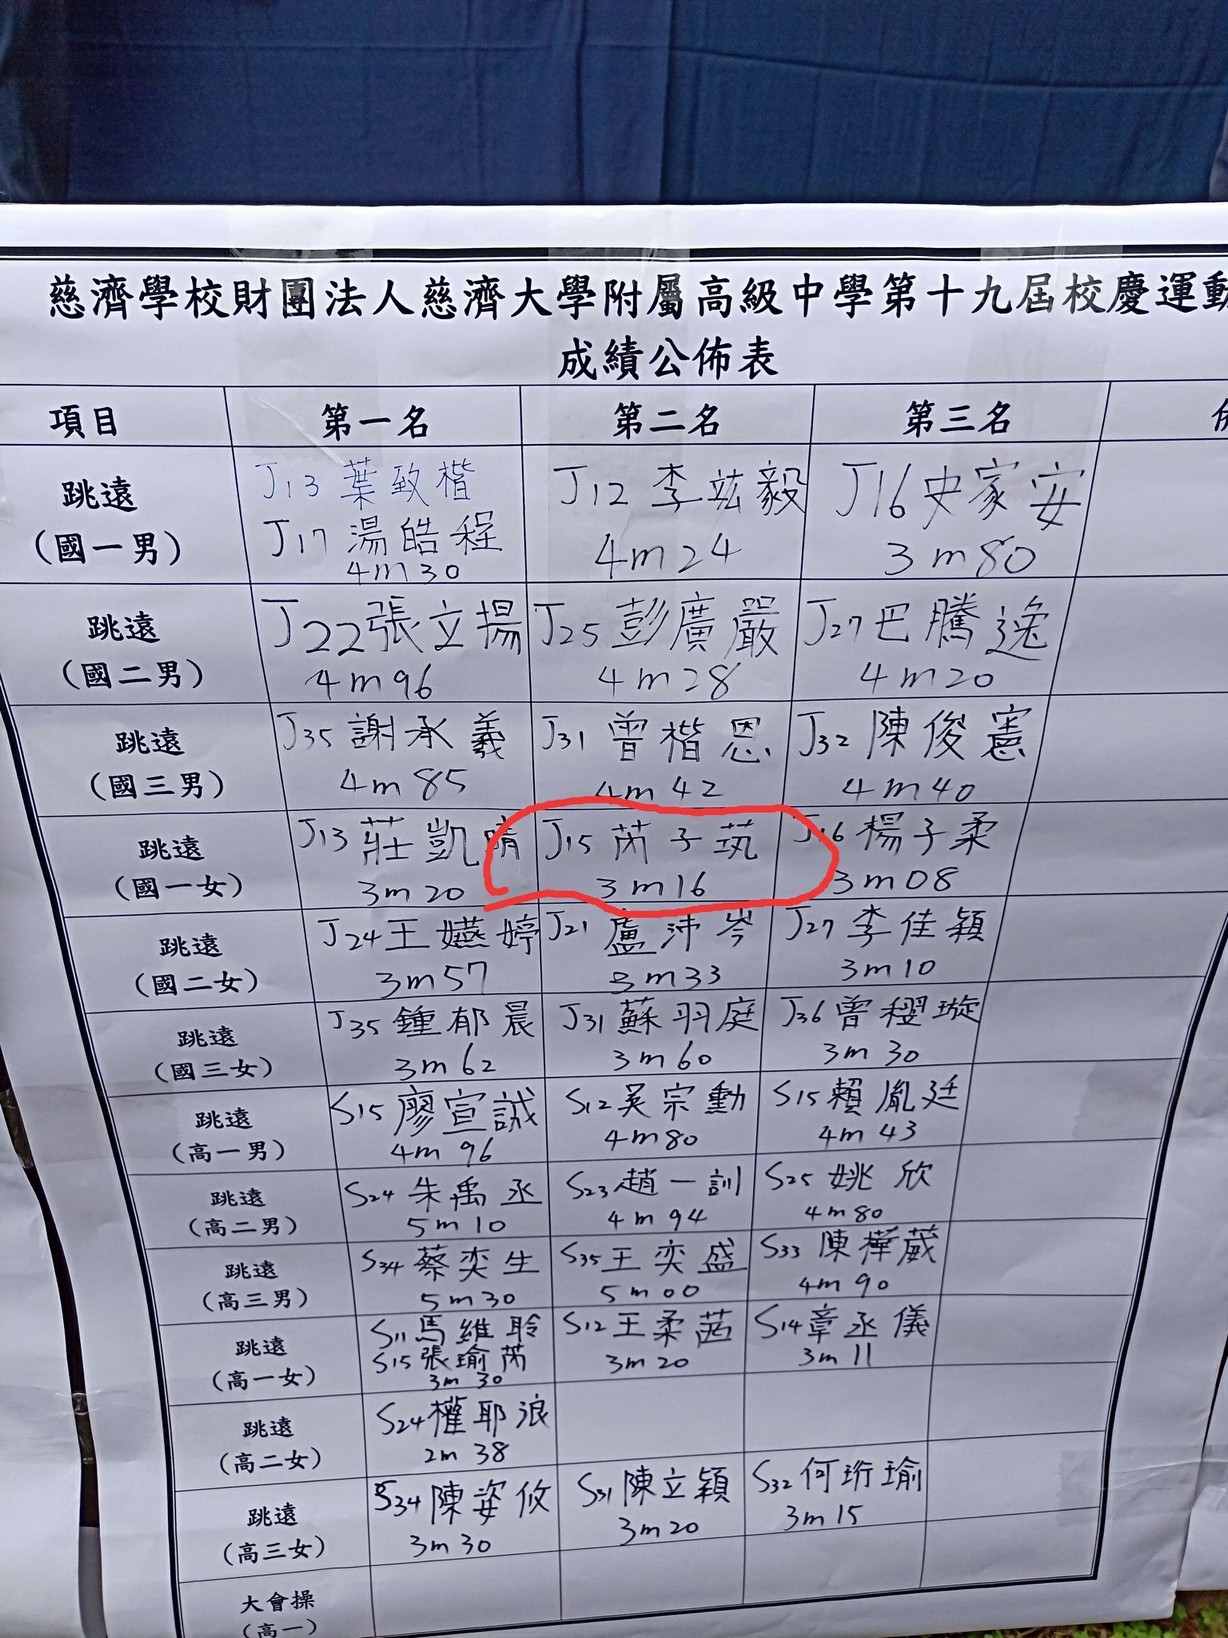 慈濟學校財團法人慈濟大學附屬高級中學第十九屆校慶運動
成績公佈表
項目 第一名 第二名 第三名
跳遠
(國一男)
J13 葉致楷
J17 湯皓程
4m30
J12 李竑毅
4m24
J16 史家安
3m80
跳遠
(國二男)
J22 張立揚
4m96
J25 彭廣嚴
4m28
J27 巴騰逸
4m20
跳遠
(國三男)
J35 謝承羲
4m85
J31 曾楷恩
4m42
J32 陳俊憲
4m40
跳遠
(國一女)
J13 莊凱晴
3m20
J15 芮子茿
3m16
J16 楊子柔
3m08
跳遠
(國二女)
J24 王嬿婷
3m57
J21 盧沛岑
3m33
J27 李佳穎
3m10
跳遠
(國三女)
J35 鍾郁晨
3m62
J31 蘇羽庭
3m60
J36 曾稷璇
3m30
跳遠
(高一男)
S15 廖宣誠
4m96
S12 吳宗勳
4m80
S15 賴胤廷
4m43
跳遠
(高二男)
S24 朱禹丞
5m10
S23 趙一訓
4m94
S25 姚欣
4m80
跳遠
(高三男)
S34 蔡奕生
5m30
S35 王奕盛
5m00
S33 陳樺葳
4m90
跳遠
(高一女)
S11 馬維聆
S15 張瑜芮
3m30
S12 王柔茜
3m20
S14 章丞儀
3m11
跳遠
(高二女)
S24 權耶浪
2m38
跳遠
(高三女)
S34 陳姿攸
3m30
S31 陳立穎
3m20
S32 何珩瑜
3m15
大會操
(高一)